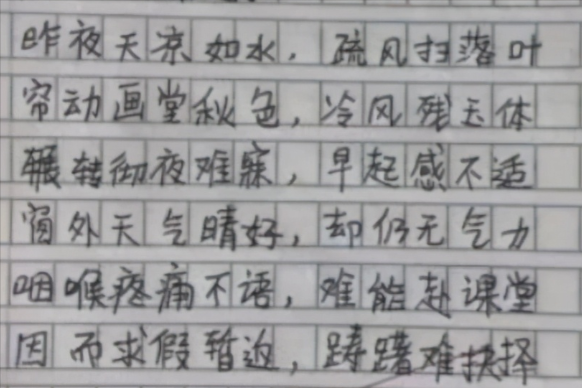 昨夜天凉如水，疏风扫落叶
帘动画堂秋色，冷风残玉体
辗转彻夜难寐，早起感不适
窗外天气晴好，却仍无气力
咽喉疼痛不语，难能赴课堂
因而求假暂返，踌躇难抉择